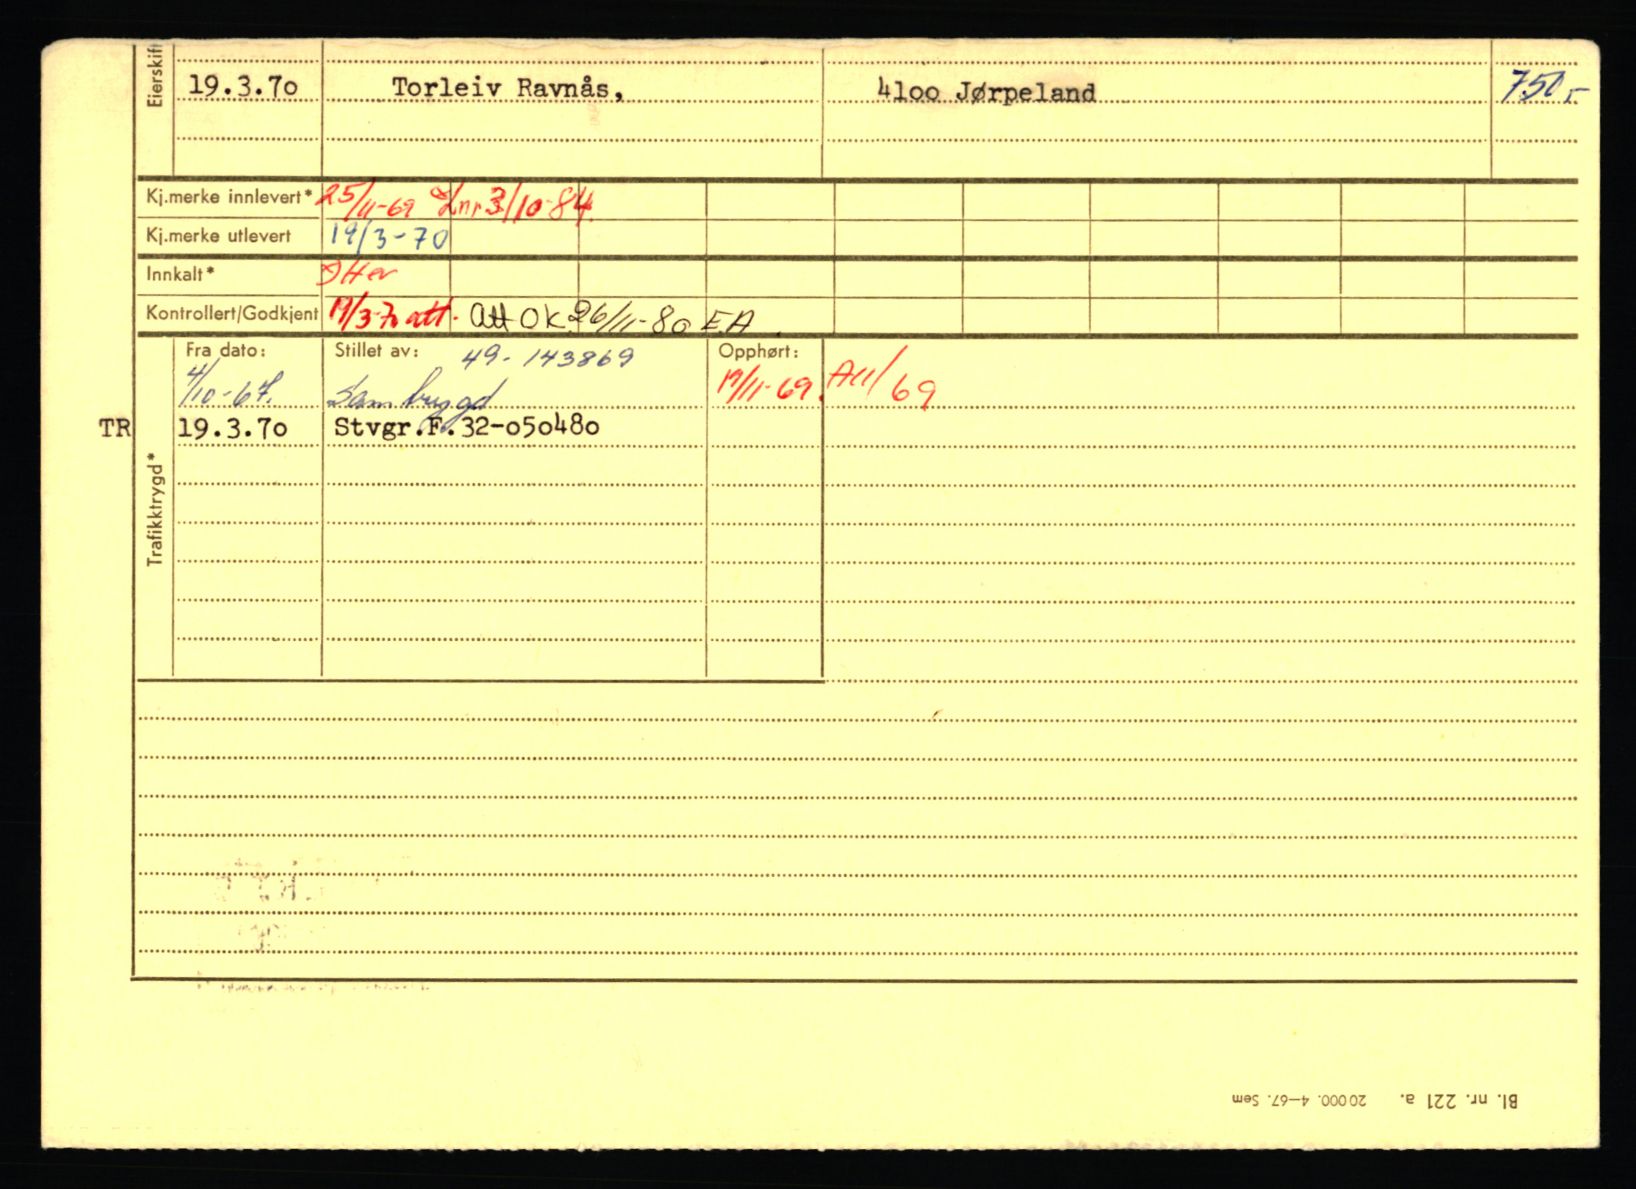 Eierskift
19.3.70 Torleiv Ravnås, 4100 Jørpeland 750,-
Kj.merke innlevert* 25/11-69 Lnr 3/10-84.
Kj.merke utlevert 19/3-70
Innkalt*
Kontrollert/Godkjent 19/3-70 att. att OK 26/11-80 E.A.
Fra dato: Stillet av: 49-143869 Opphørt:
4/10-67. Sambygd 19/11-69. A11/69
TR 19.3.70 Stvgr.F.32-050480
Trafikktrygd*
Bl. nr. 221 a. 20000. 4–67. Sem